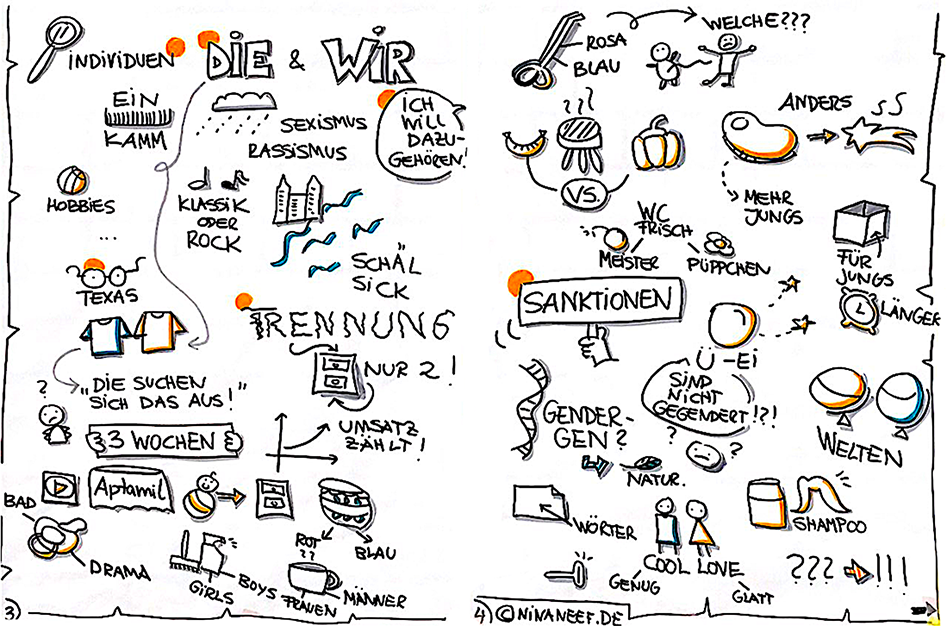 INDIVIDUEN
DIE & WIR
EIN
KAMM
SEXISMUS
RASSISMUS
ICH
WILL
DAZU-
GEHÖREN!
HOBBIES
...
KLASSIK
ODER
ROCK
SCHÄL
SICK
TEXAS
TRENNUNG
NUR 2!
?
"DIE SUCHEN
SICH DAS AUS!"
3 WOCHEN
UMSATZ
ZÄHLT!
Aptamil
BAD
DRAMA
GIRLS
BOYS
ROT
??
BLAU
FRAUEN
MÄNNER
3)
ROSA
BLAU
WELCHE???
???
VS.
ANDERS
MEHR
JUNGS
WC
FRISCH
MEISTER
PÜPPCHEN
FÜR
JUNGS
SANKTIONEN
LÄNGER
Ü-Ei
SIND
NICHT
GEGENDERT!?!
GENDER-
GEN?
? ?
NATUR.
WELTEN
WÖRTER
SHAMPOO
COOL LOVE
GENUG
GLATT
??? !!!
4) © NINANEEF.DE